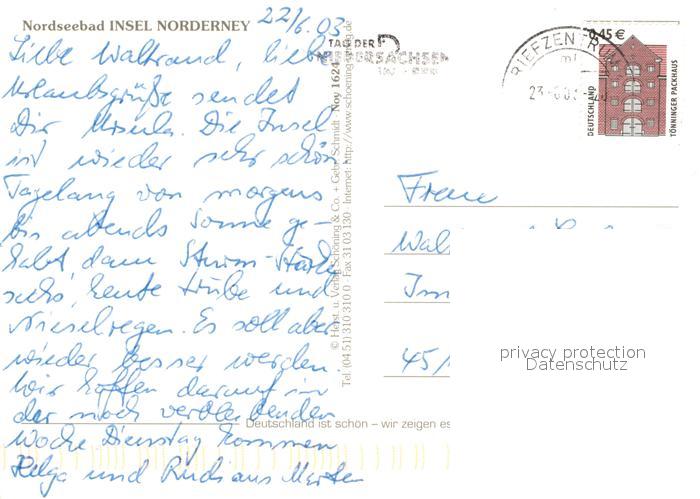 Nordseebad INSEL NORDERNEY
22/6.03
Liebe Waltraud, liebe
Urlaubsgrüße sendet
Dir Ursula. Die Insel
ist wieder sehr schön
Tagelang von morgens
bis abends Sonne ge-
habt, dann Sturm-Stärke
sechs, heute trübe und
Nieselregen. Es soll aber
wieder besser werden.
Wir hoffen darauf in
der noch verbleibenden
Woche Dienstag kommen
Helga und Rudi aus
TAG DER
NIEDERSACHSEN
BRIEFZENTRUM
0,45 €
DEUTSCHLAND
TÖNNINGER PACKHAUS
© Herst. u. Verlag Schöning & Co. + Gebr. Schmidt · Noy 1624
Tel. (04 51) 310 310 0 · Fax 31 03 130 · Internet: http://www.schoening-verlag.de
Frau
Wal
Im
45
privacy protection
Datenschutz
Deutschland ist schön – wir zeigen es